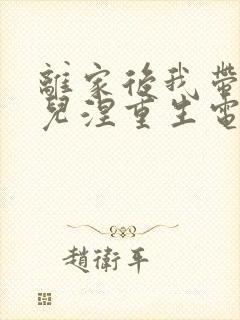 離家後我帶
兒涅重生電
趙衛平